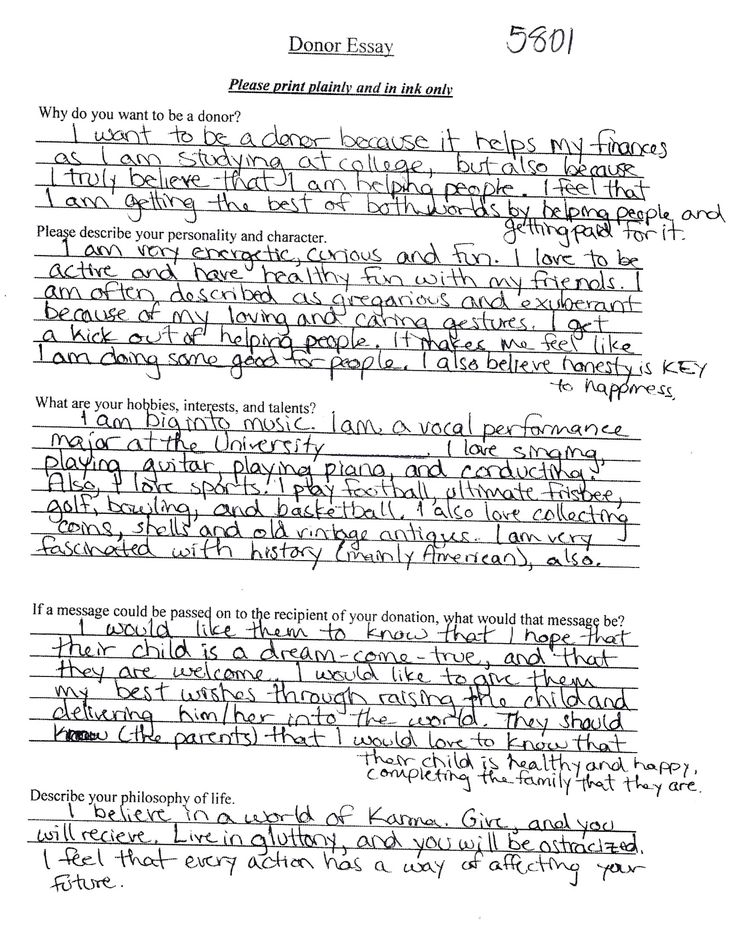 Donor Essay
5801
Please print plainly and in ink only
Why do you want to be a donor?
I want to be a donor because it helps my finances
as I am studying at college, but also because
I truly believe that I am helping people. I feel that
I am getting the best of both worlds by helping people and
getting paid for it.
Please describe your personality and character.
I am very energetic, curious and fun. I love to be
active and have healthy fun with my friends. I
am often described as gregarious and exuberant
because of my loving and caring gestures. I get
a kick out of helping people. It makes me feel like
I am doing some good for people. I also believe honesty is KEY
to happiness.
What are your hobbies, interests, and talents?
I am big into music. I am a vocal performance
major at the University. I love singing,
playing guitar, playing piano, and conducting.
Also, I love sports. I play football, ultimate frisbee,
golf, bowling, and basketball. I also love collecting
coins, shells and old vintage antiques. I am very
fascinated with history (mainly American), also.
If a message could be passed on to the recipient of your donation, what would that message be?
I would like them to know that I hope that
their child is a dream-come-true, and that
they are welcome. I would like to give them
my best wishes through raising the child and
delivering him/her into the world. They should
know (the parents) that I would love to know that
their child is healthy and happy,
completing the family that they are.
Describe your philosophy of life.
I believe in a world of Karma. Give, and you
will recieve. Live in gluttony, and you will be ostracized.
I feel that every action has a way of affecting your
future.